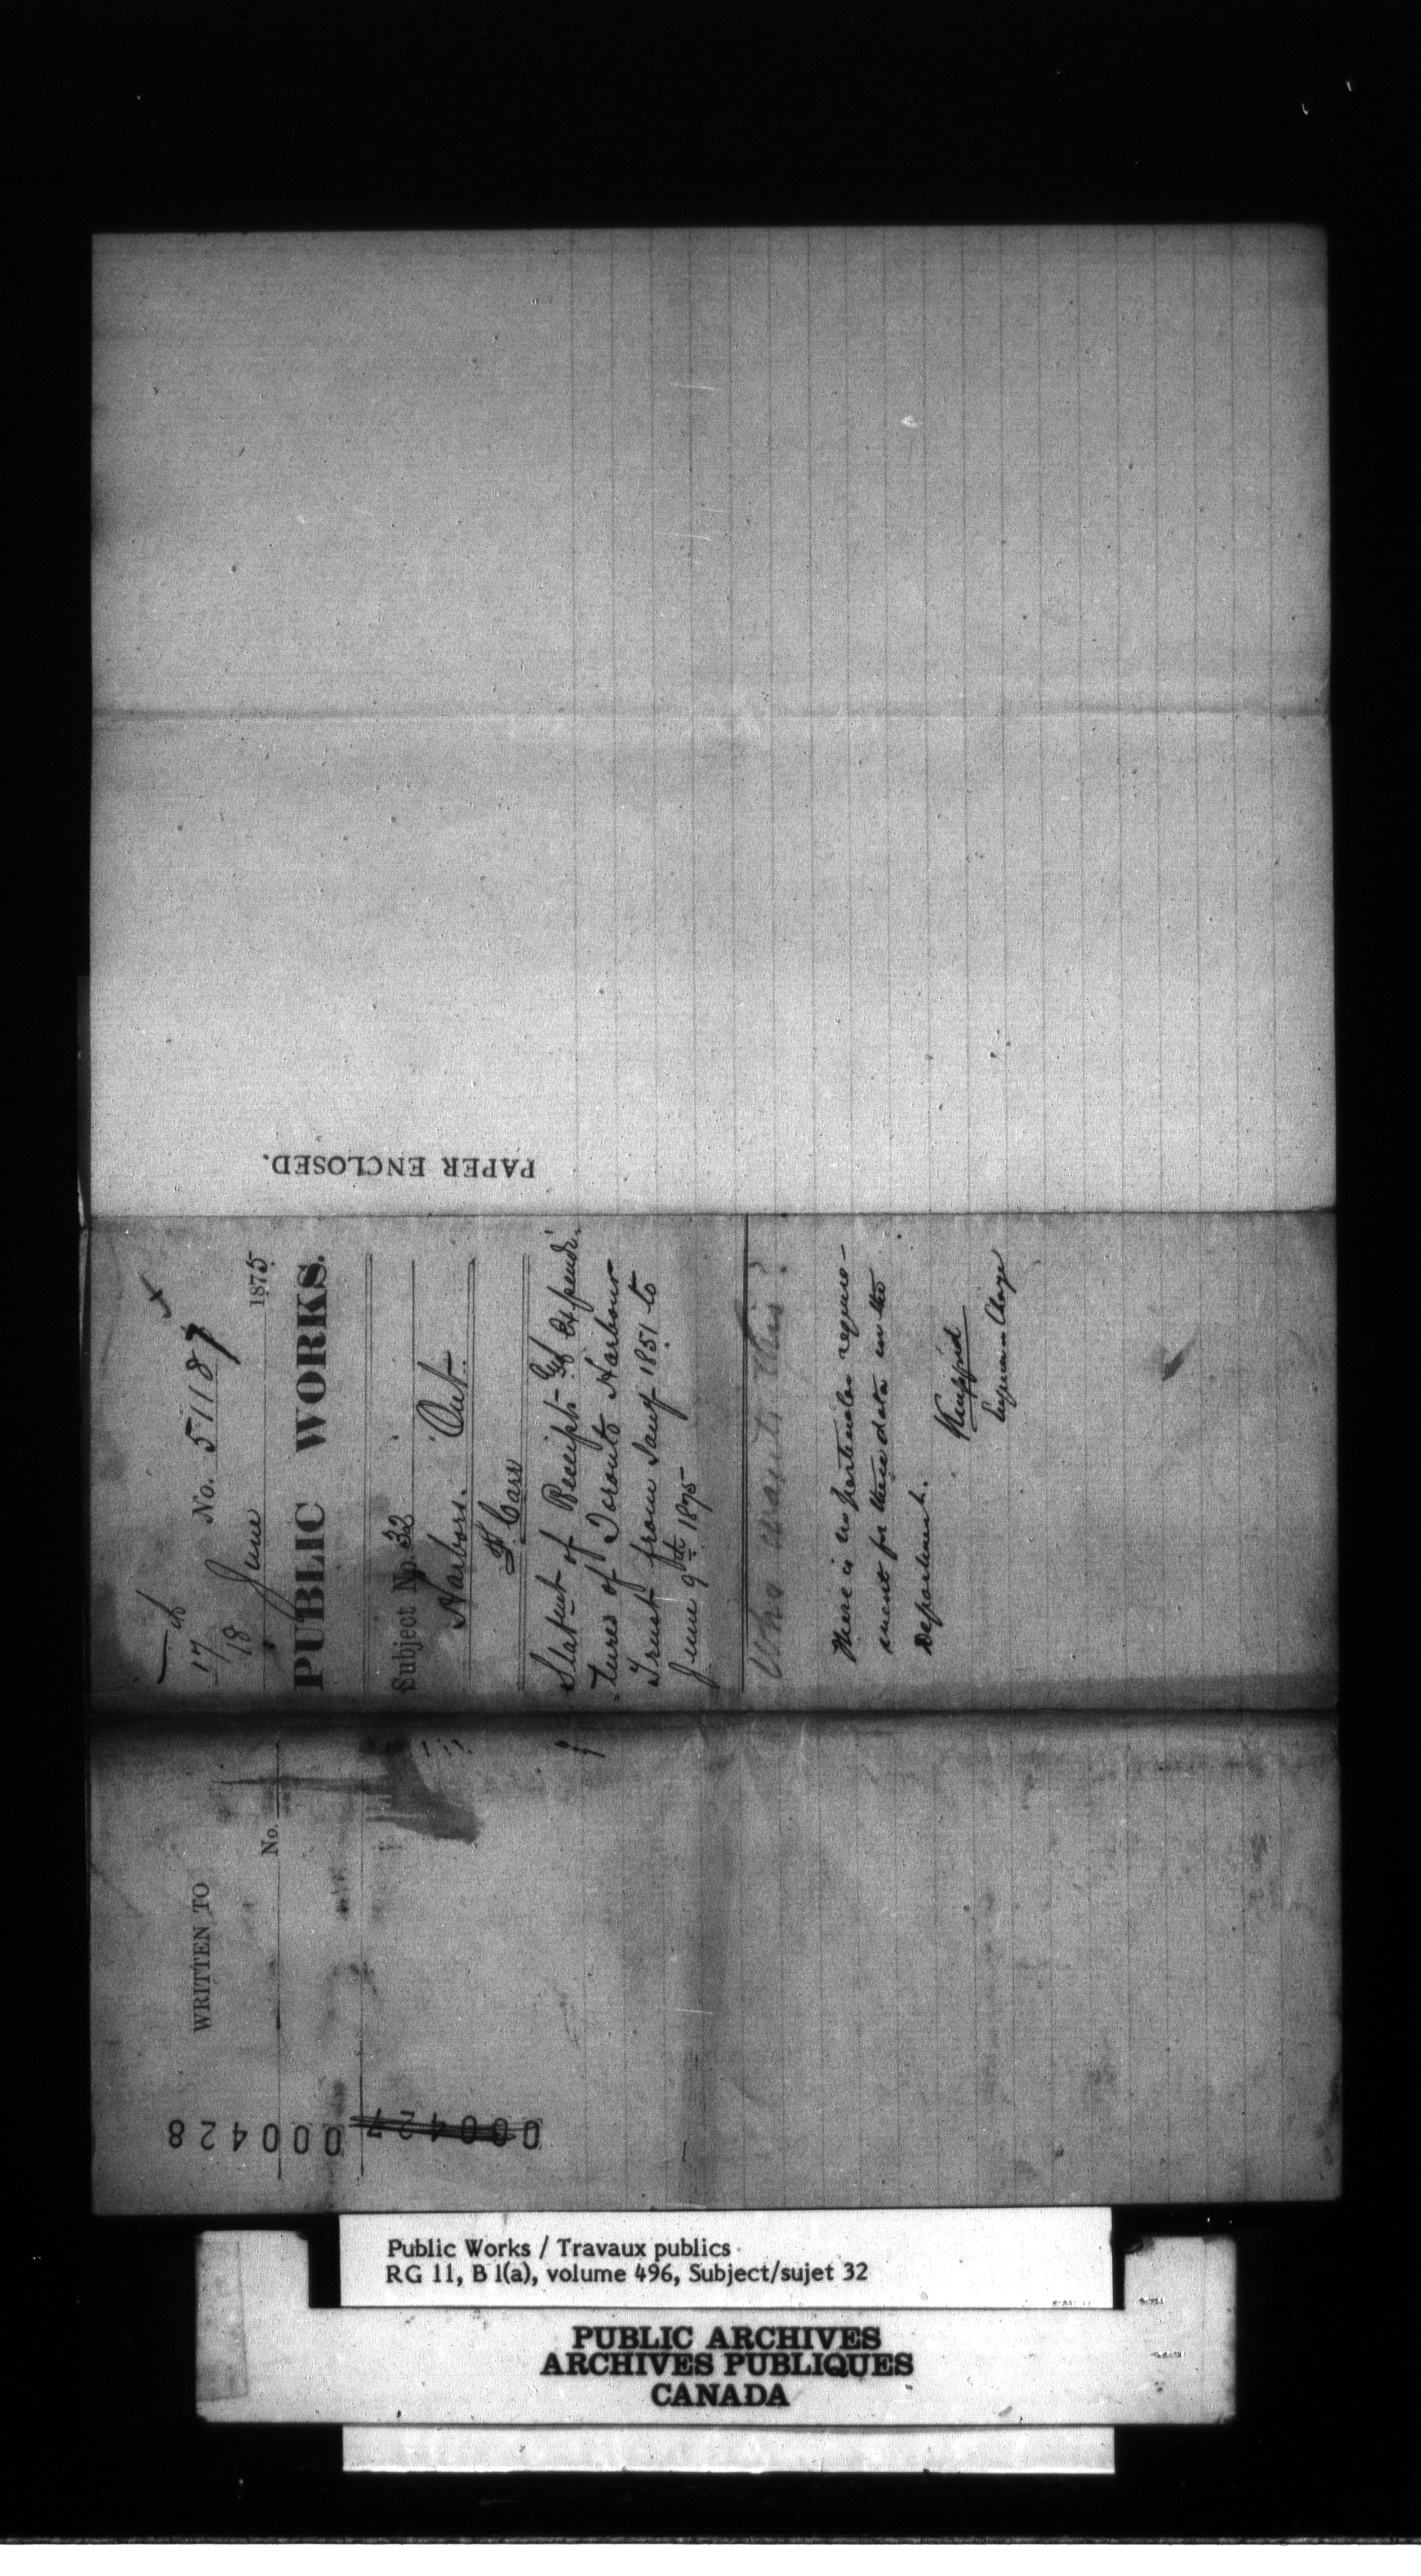 PAPER ENCLOSED.
No. 51187
17
18 June 1875
PUBLIC WORKS.
Subject No. 32
Harbors. Ont.
Carr
Statemt of Receipts & Expendi-
tures of Toronto Harbour
Trust from Jany 1851 to
June 9th 1875
Who wants this?
There is no particular require-
ment for these data in the
Department.
WRITTEN TO
No.
000428
000427
Public Works / Travaux publics
RG 11, B 1(a), volume 496, Subject/sujet 32
PUBLIC ARCHIVES
ARCHIVES PUBLIQUES
CANADA